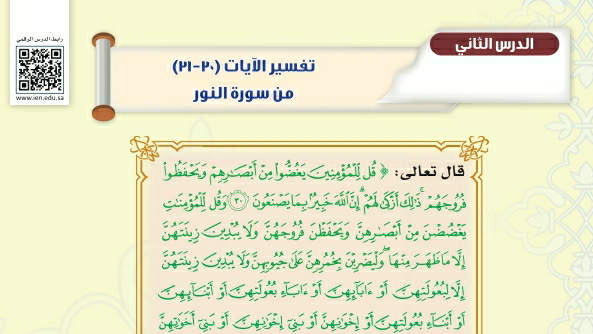 رابط الدرس الرقمي
www.ien.edu.sa
الدرس الثاني
تفسير الآيات (٣٠-٣١)
من سورة النور
قال تعالى: ﴿ قُل لِّلْمُؤْمِنِينَ يَغُضُّوا۟ مِنْ أَبْصَـٰرِهِمْ وَيَحْفَظُوا۟
فُرُوجَهُمْ ۚ ذَٰلِكَ أَزْكَىٰ لَهُمْ ۗ إِنَّ ٱللَّهَ خَبِيرٌۢ بِمَا يَصْنَعُونَ ٣٠ وَقُل لِّلْمُؤْمِنَـٰتِ
يَغْضُضْنَ مِنْ أَبْصَـٰرِهِنَّ وَيَحْفَظْنَ فُرُوجَهُنَّ وَلَا يُبْدِينَ زِينَتَهُنَّ
إِلَّا مَا ظَهَرَ مِنْهَا ۖ وَلْيَضْرِبْنَ بِخُمُرِهِنَّ عَلَىٰ جُيُوبِهِنَّ ۖ وَلَا يُبْدِينَ زِينَتَهُنَّ
إِلَّا لِبُعُولَتِهِنَّ أَوْ ءَابَآئِهِنَّ أَوْ ءَابَآءِ بُعُولَتِهِنَّ أَوْ أَبْنَآئِهِنَّ
أَوْ أَبْنَآءِ بُعُولَتِهِنَّ أَوْ إِخْوَٰنِهِنَّ أَوْ بَنِىٓ إِخْوَٰنِهِنَّ أَوْ بَنِىٓ أَخَوَٰتِهِنَّ